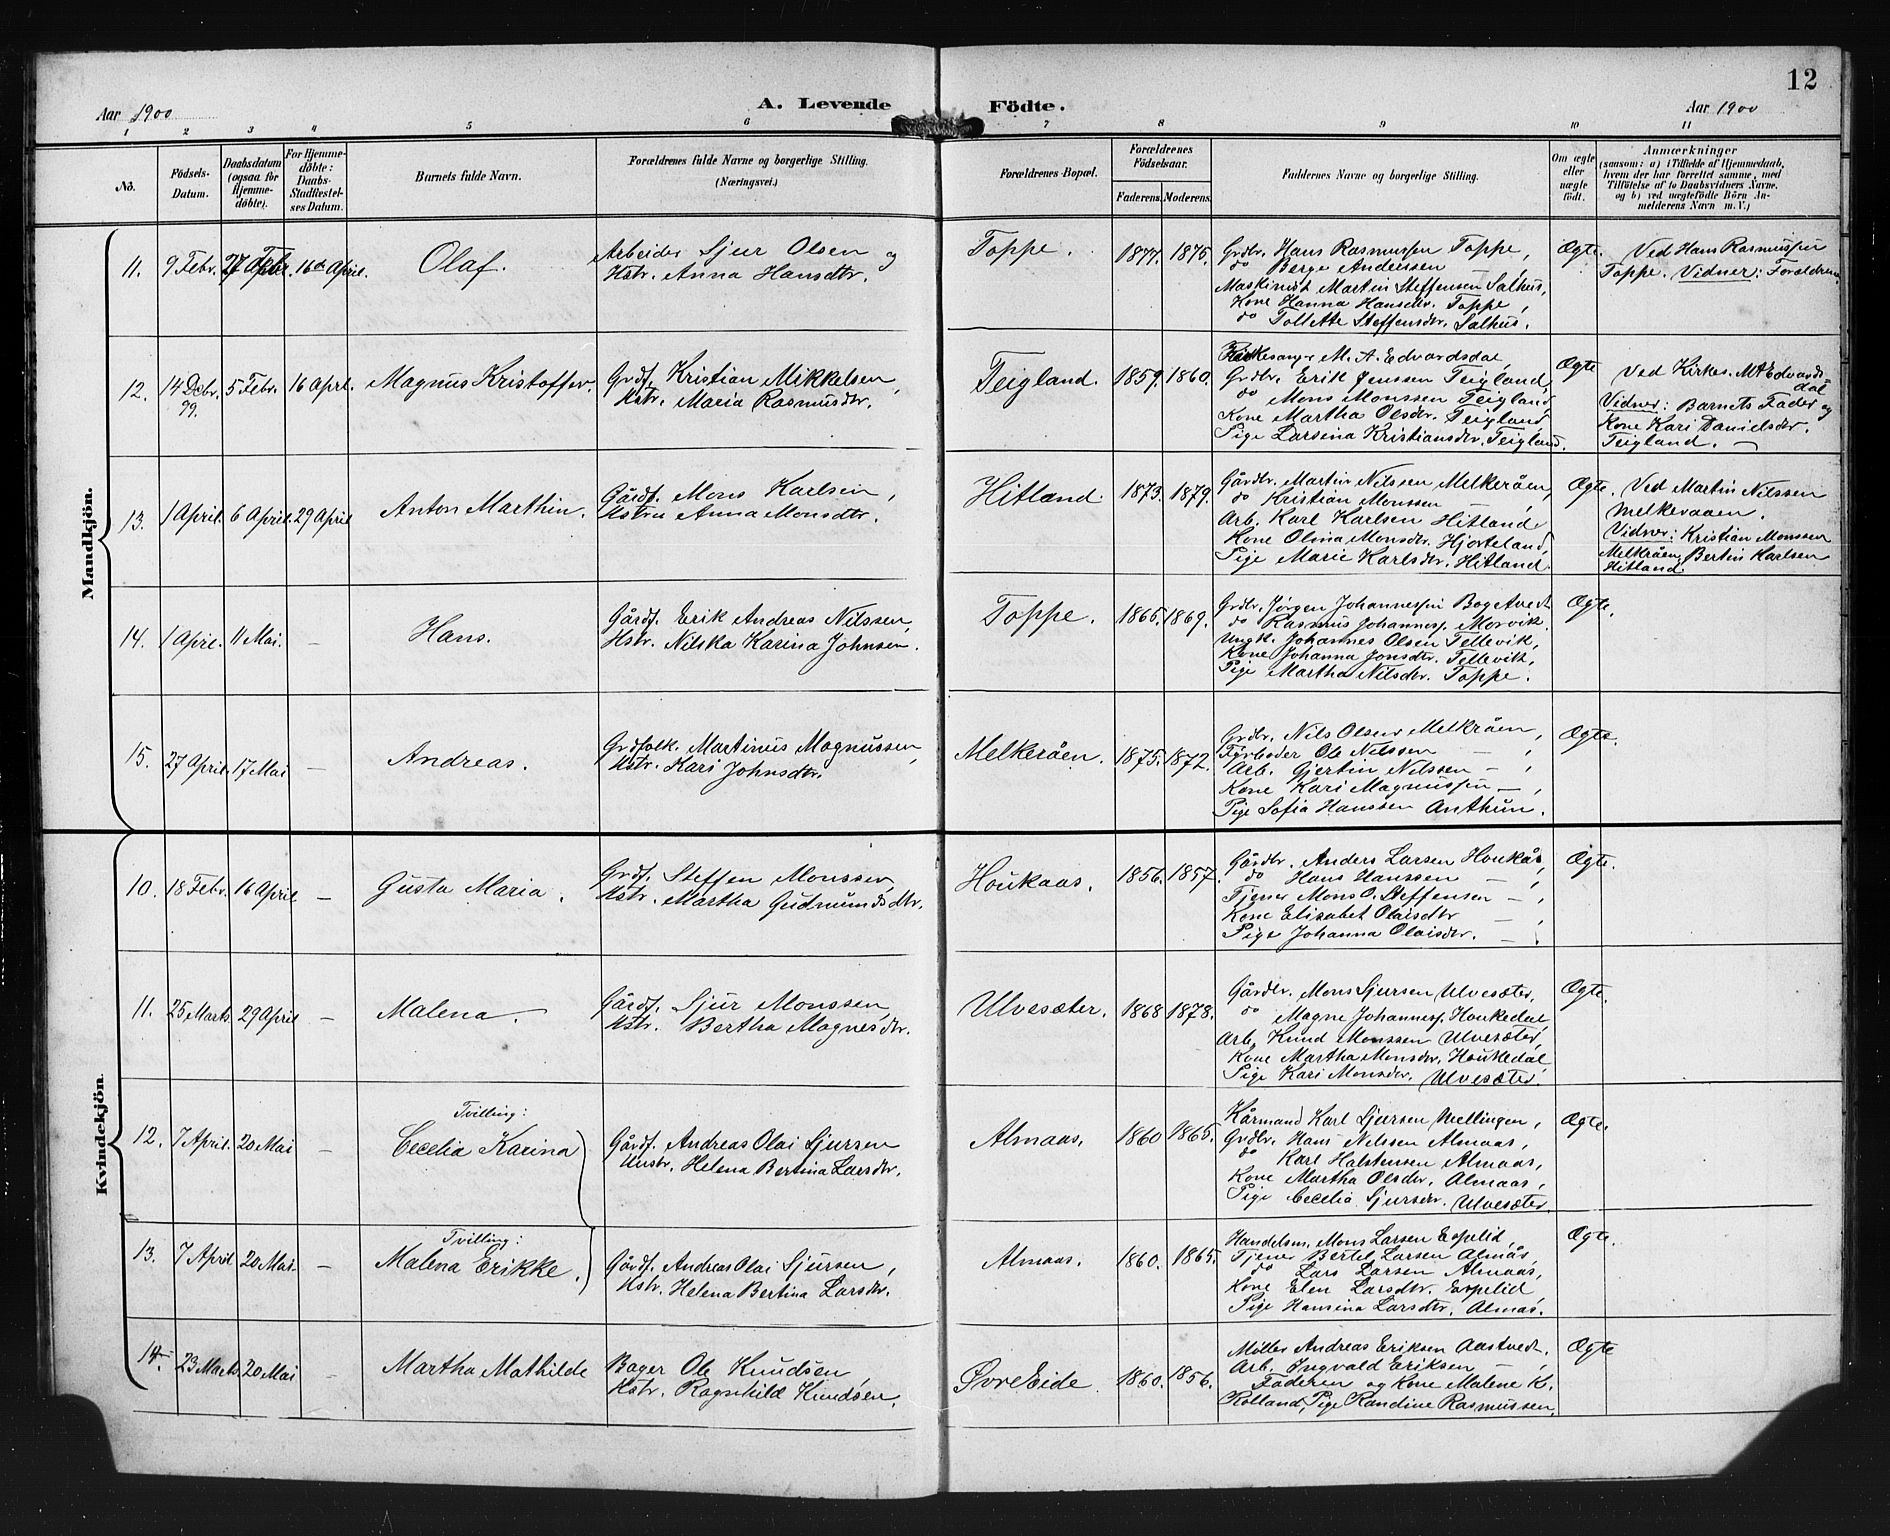 12
Aar 1900 A. Levende Födte. Aar 1900
1 2 3 4 5 6 7 8 9 10 11
No.
Födsels-Datum.
Daabsdatum (ogsaa for Hjemme-döbte).
For Hjemme-döbte: Daabs-Stadfæstel-ses Datum.
Barnets fulde Navn.
Forældrenes fulde Navne og borgerlige Stilling.
(Næringsvei.)
Forældrenes-Bopæl.
Forældrenes Födselsaar.
Faderens. Moderens.
Faddernes Navne og borgerlige Stilling.
Om ægte eller uægte födt.
Anmærkninger
(saasom: a) i Tilfælde af Hjemmedaab,
hvem der har forrettet samme, med
Tilföielse af to Daabsvidners Navne,
og b) ved uægtefödte Börn An-
melderens Navn m. V.)
Mandkjön.
11. 9 Febr. 27 Febr. 16de April. Olaf.
Arbeider Sjur Olsen og
Hstr. Anna Hansdtr.
Toppe. 1877. 1875.
Grdbr. Hans Rasmussen Toppe,
do Berge Anderssen
Maskinist Martin Steffensen Salhus,
Kone Hanna Hansdtr. Toppe,
do Tollette Steffensdtr. Salhus.
Ægte.
Ved Hans Rasmussen
Toppe. Vidner: Forældrene.
12. 14 Decbr. 99. 5 Febr. 16 April. Magnus Kristoffer.
Grdf. Kristian Mikkelsen,
Hstr. Maria Rasmusdtr.
Teigland. 1859. 1860.
Kirkesanger M. A. Edvardsdal,
Grdbr. Erik Jenssen Teigland,
do Mons Monssen Teigland,
Kone Martha Olsdtr. Teigland,
Pige Larsina Kristiansdtr. Teigland.
Ægte
Ved Kirkes. M A Edvards-
dal
Vidner: Barnets Fader og
Kone Kari Danielsdtr.
Teigland. —
13. 1 April. 6 April. 29 April Anton Marthin.
Gårdf. Mons Karlsen,
Hstru Anna Monsdtr.
Hitland. 1873. 1879.
Gårdbr. Martin Nilssen Melkeråen,
do Kristian Monssen — ,
Arb. Karl Karlsen Hitland
Kone Olina Monsdtr. Hjorteland,
Pige Marie Karlsdtr. Hitland.
Ægte.
Ved Martin Nilssen
Melkeraaen.
Vidner: Kristian Monssen
Melkråen, Bertin Karlsen
Hitland.
14. 1 April. 11 Mai. — Hans.
Gårdf. Erik Andreas Nilssen,
Hstr. Nilska Karina Johnsen.
Toppe. 1865. 1869.
Grdbr. Jørgen Johannessen Bogetvedt
do Rasmus Johannesg. Morvik.
Ungk. Johannes Olsen Tellevik,
Kone Johanna Jonsdtr. Tellevik,
Pige Martha Nilsdtr. Toppe.
Ægte.
15. 27 April. 17 Mai — Andreas.
Grdfolk. Martinus Magnussen,
Hstr. Kari Johnsdtr.
Melkeråen. 1875. 1872.
Grdbr. Nils Olsen Melkråen,
Fyrbøder Ole Nilssen — ,
Arb. Gjertin Nilssen — ,
Kone Kari Magnussen — ,
Pige Sofia Hanssen Anthun.
Ægte.
Kvindekjön.
10. 18 Febr. 16 April — Gusta Maria.
Grdf. Steffen Monssen,
Hstr. Martha Gudmundsdtr.
Houkaas. 1856. 1857.
Gårdbr. Anders Larsen Houkås,
do Hans Hanssen — ,
Tjener Mons O. Steffensen — ,
Kone Elisabet Olaisdtr — ,
Pige Johanna Olaisdtr. — .
Ægte.
11. 25 Marts. 29 April — Malena.
Gårdf. Sjur Monssen,
Hstr. Bertha Magnesdtr.
Ulvesæter. 1868 1878.
Gårdbr. Mons Sjursen Ulvesæter,
do Magne Johannesg. Houkedal
Arb. Knud Monssen Ulvesæter,
Kone Martha Monsdtr. Houkedal
Pige Kari Monsdtr. Ulvesæter.
Ægte.
12. 7 April. 20 Mai — Tvilling:
Cecelia Karina
Gårdf. Andreas Olai Sjursen
Hustr. Helena Bertina Larsdtr.
Almaas. 1860 1865.
Kårmand Karl Sjursen Mellingen,
Grdbr. Hans Nilssen Almaas,
do Karl Halstensen Almaas,
Kone Martha Olsdtr. Almaas,
Pige Cecelia Sjursdtr. Ulvesæter.
Ægte.
13. 7 April 20 Mai. — Tvilling:
Malena Erikke.
Gårdf. Andreas Olai Sjursen,
Hstr. Helena Bertina Larsdtr.
Almaas. 1860. 1865.
Handelsm. Mons Larsen Espelid,
Tjener Bertel Larsen Almås,
do Lars Larsen Almaas,
Kone Elen Larsdtr. Espelid
Pige Hansina Larsdtr. Almås.
Ægte.
14. 23 Marts. 20 Mai — Martha Mathilde
Bager Ole Knudsen,
Hstr. Ragnhild Knudsen.
Øvre Eide 1860. 1856.
Møller Andreas Eriksen Aastvedt.
Arb. Ingvald Eriksen — ,
Faderen og Kone Malene K.
Rolland, Pige Randine Rasmussen.
Ægte